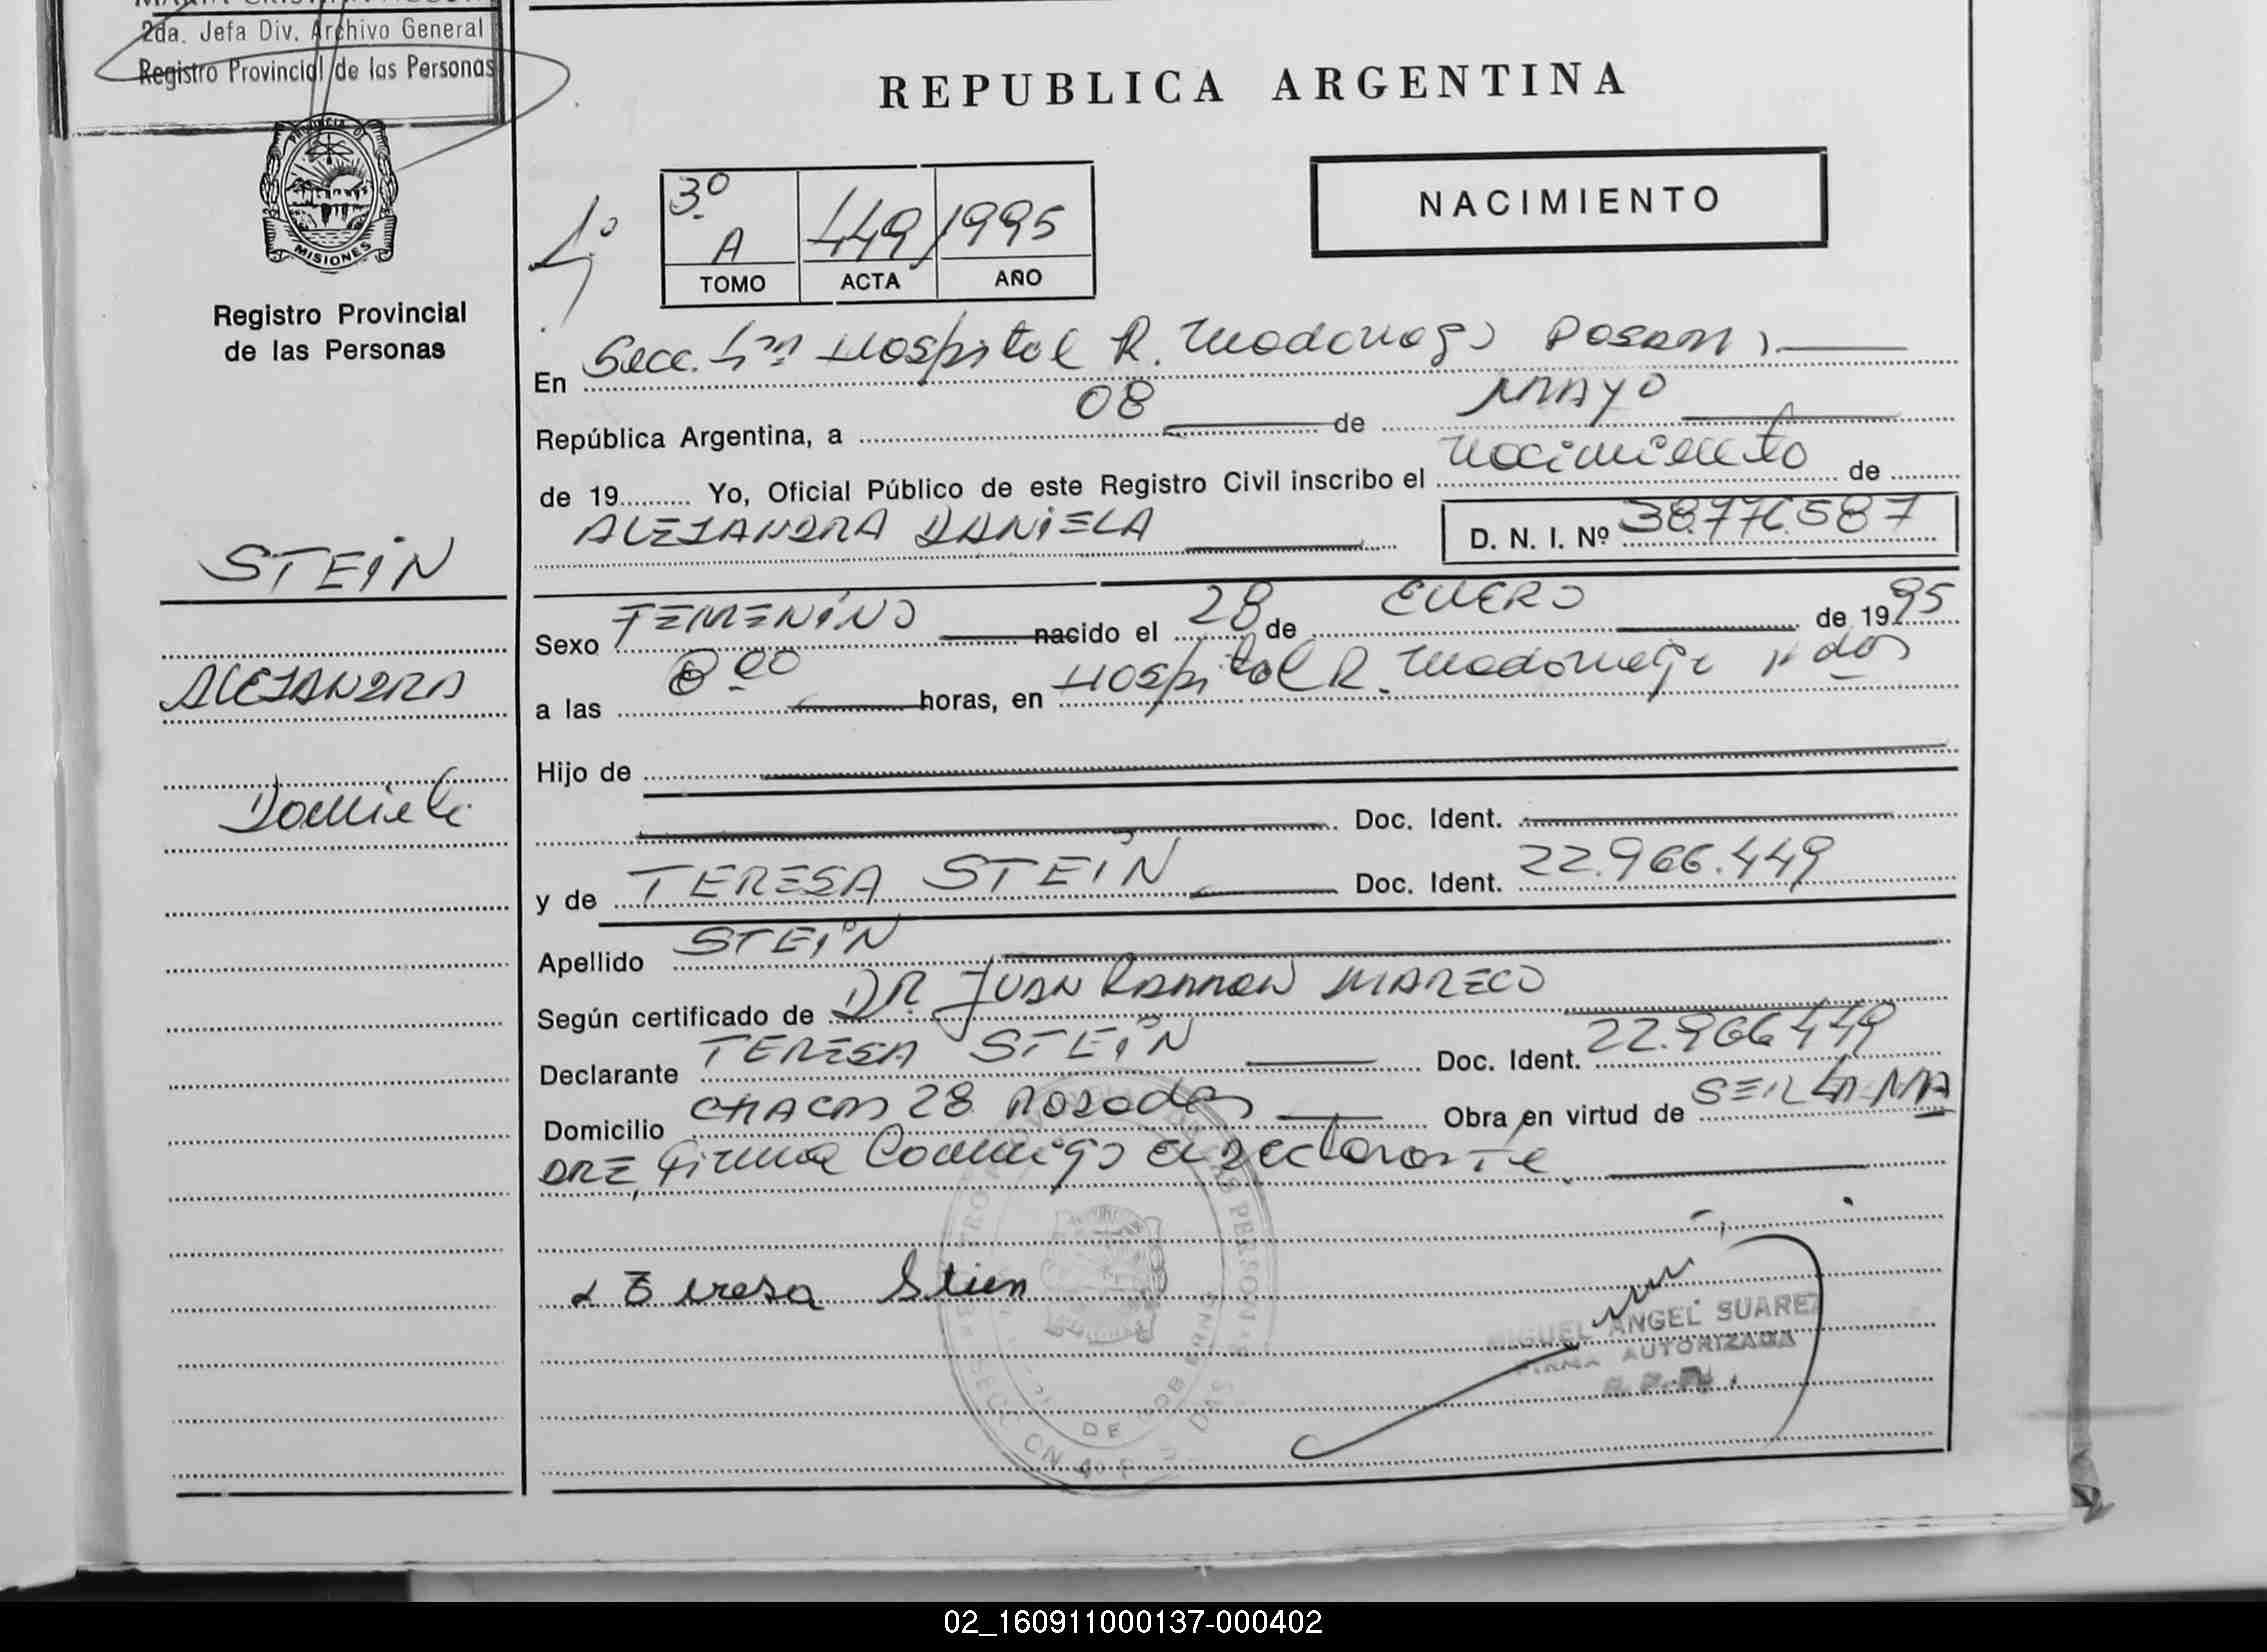 2da. Jefa Div. Archivo General
Registro Provincial de las Personas
PROVINCIA DE
MISIONES
Registro Provincial
de las Personas
STEIN
ALEJANDRA
Daniela
REPUBLICA ARGENTINA
3º
A 449 1995
TOMO ACTA AÑO
NACIMIENTO
En Secc. 4ta Hospital R. Madariaga Posadas
República Argentina, a 08 de MAYO
de 19 Yo, Oficial Público de este Registro Civil inscribo el nacimiento de
ALEJANDRA DANIELA D. N. I. Nº 38.776.587
Sexo FEMENINO nacido el 28 de ENERO de 1995
a las 8 00 horas, en Hospital R. Madariaga Pdas
Hijo de
Doc. Ident.
y de TERESA STEIN Doc. Ident. 22.966.449
Apellido STEIN
Según certificado de DR. JUAN RAMON MARECO
Declarante TERESA STEIN Doc. Ident. 22.966.449
Domicilio CHACRA 28 Posadas Obra en virtud de SER LA MA
DRE, firma Conmigo el declarante
Teresa Stien
MIGUEL ANGEL SUAREZ
FIRMA AUTORIZADA
02_160911000137-000402